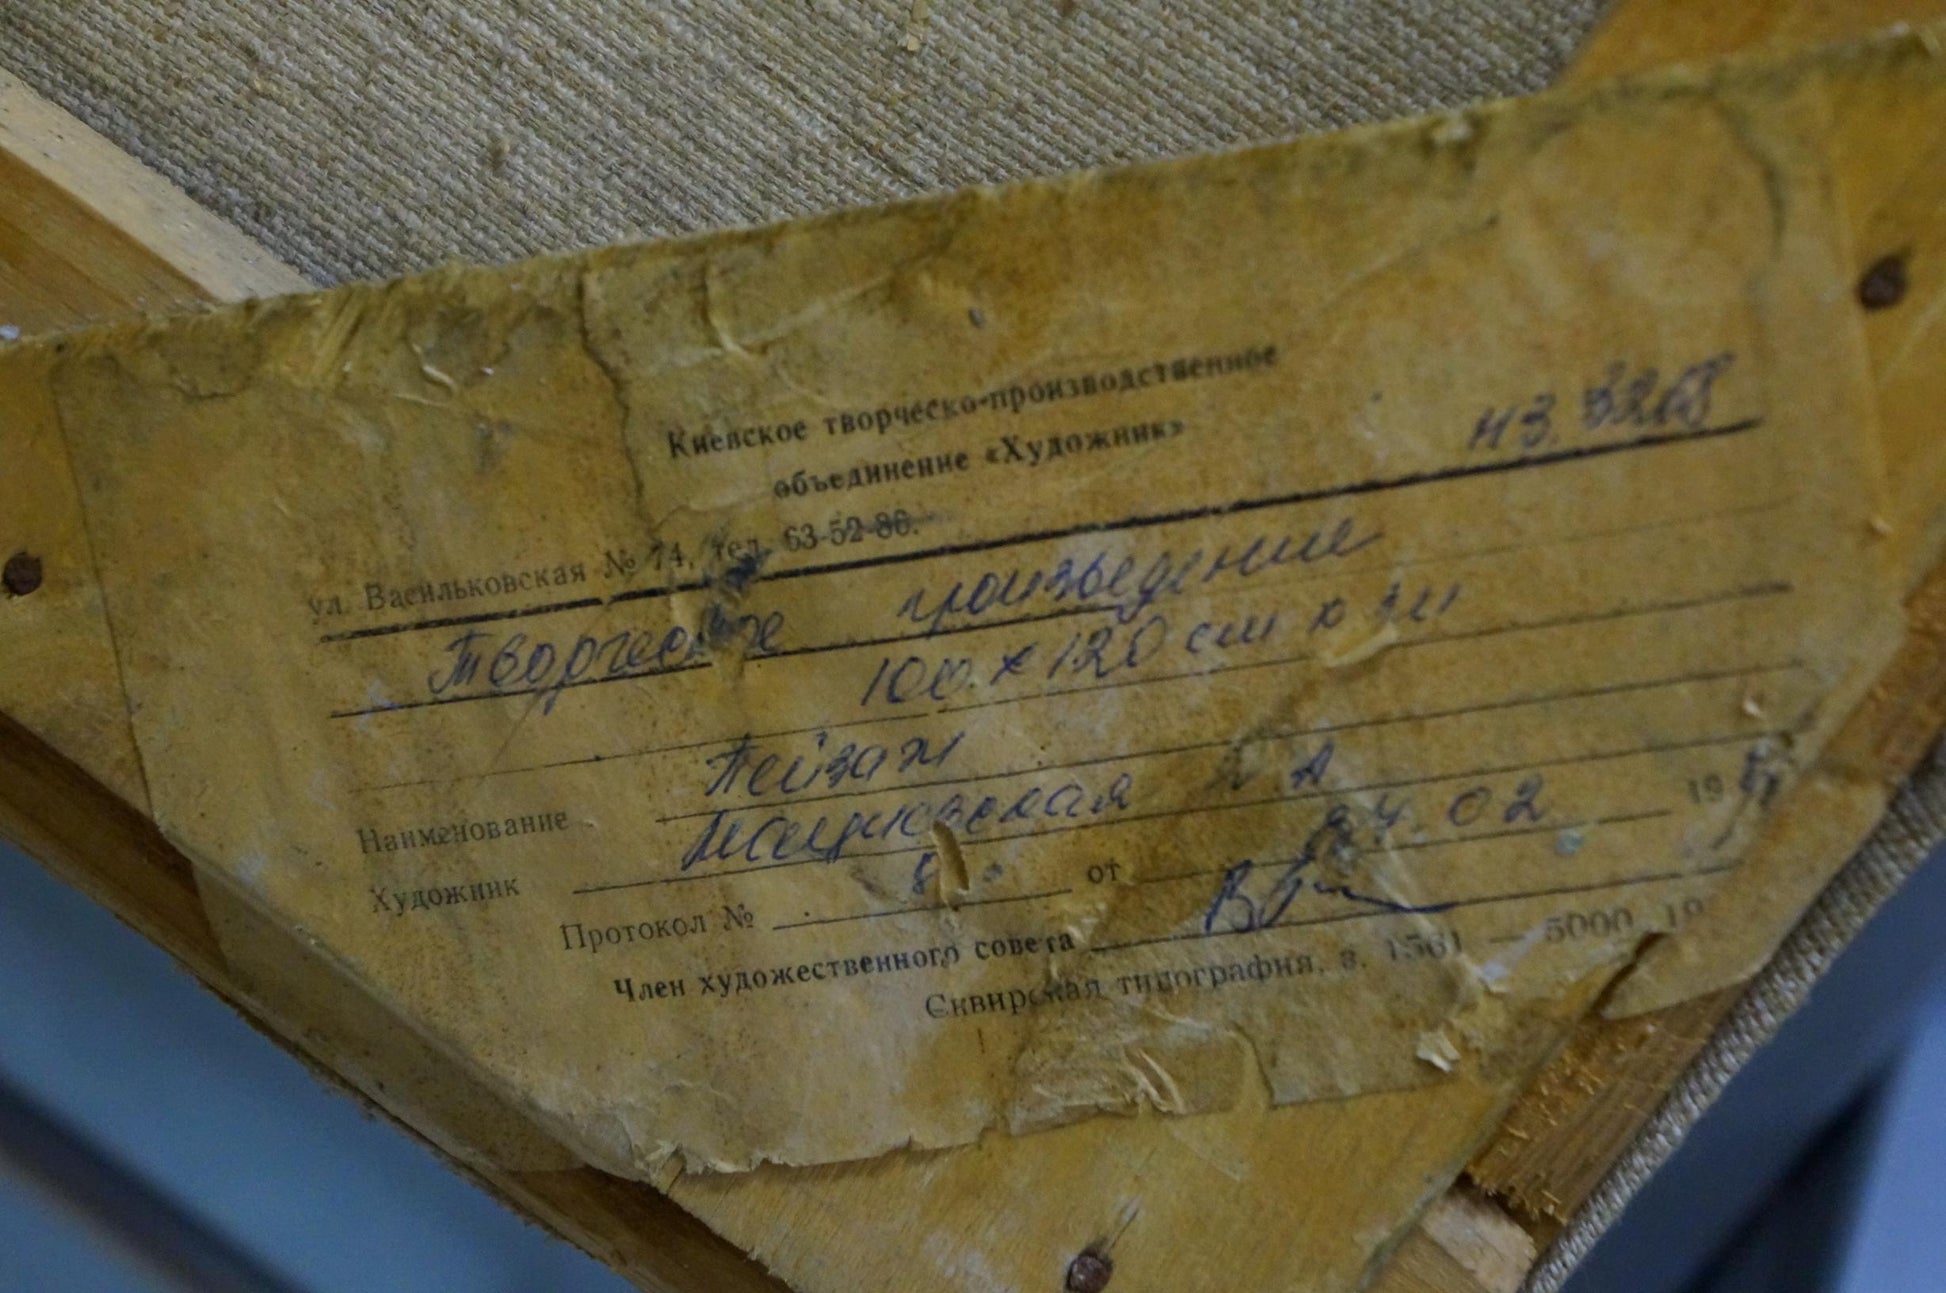 Киевское творческо-производственное
объединение «Художник»
нз. 3268
ул. Васильковская № 74, тел. 63-52-86.
Творческое произведение
100 х 120 см х
Наименование Пейзаж
Художник А
Протокол № 8 от 24.02 19
Член художественного совета
Сквирская типография, з. 1561 — 5000. 19